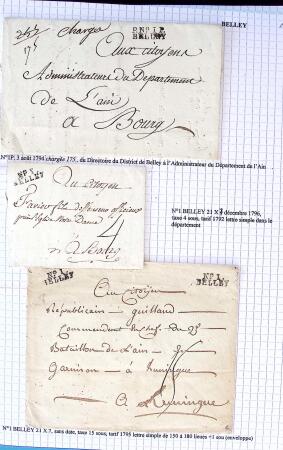 BELLEY
chargée
P.N°1.P.
BELLEY
Aux citoyens
Administrateurs du Département
De L'ain
a Bourg
N°1P, 3 août 1794 chargée 175, du Directoire du District de Belley à l'Administrateur du Département de l'Ain
N° 1.
BELLEY
Au Citoyen
4
N°1 BELLEY 21 X 7 décembre 1796,
taxe 4 sous, tarif 1792 lettre simple dans le
département
N° 1.
BELLEY
N° 1.
BELLEY
Au Citoyen
Républicain Guilland
Commandant en chef du
Bataillon de L'ain
Garnison à huningue
A huningue
N°1 BELLEY 21 X 7, sans date, taxe 15 sous, tarif 1795 lettre simple de 150 à 180 lieues +1 sou (enveloppe)